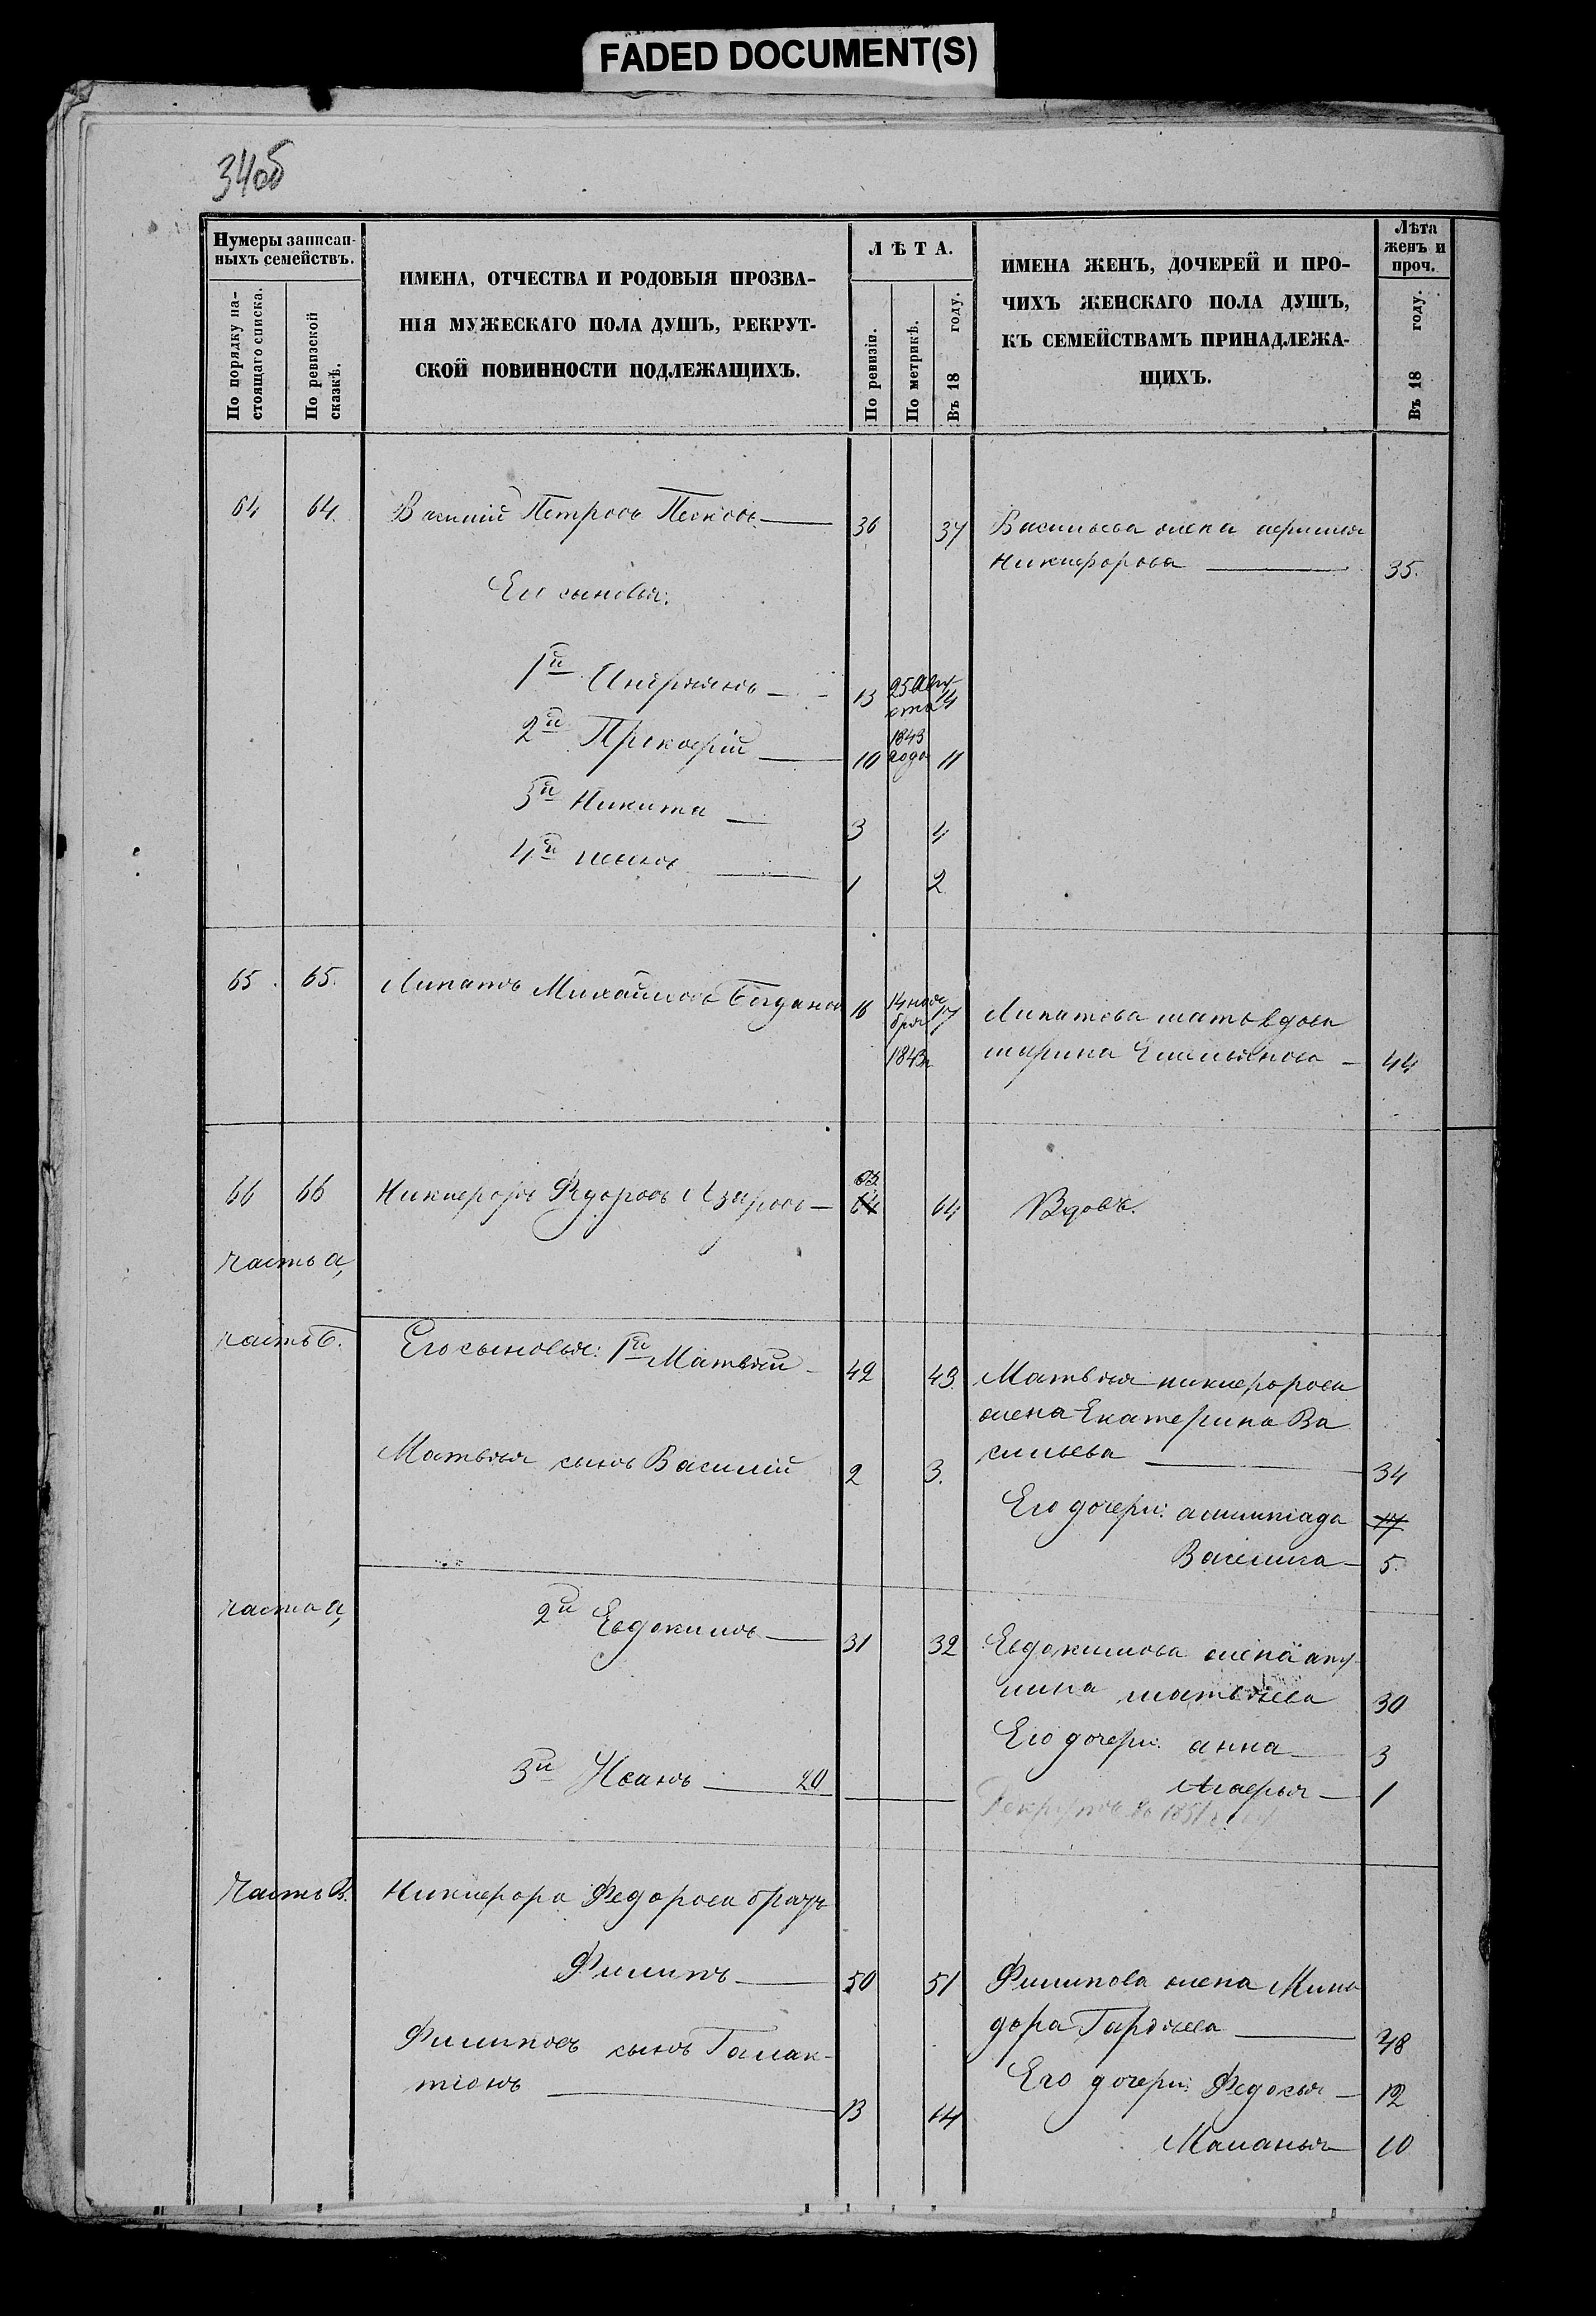 FADED DOCUMENT(S)
34об
Нумеры записан-
ныхъ семействъ.
По порядку на-
стоящаго списка.
По ревизской
сказкѣ.
ИМЕНА, ОТЧЕСТВА И РОДОВЫЯ ПРОЗВА-
НІЯ МУЖЕСКАГО ПОЛА ДУШЪ, РЕКРУТ-
СКОЙ ПОВИННОСТИ ПОДЛЕЖАЩИХЪ.
ЛѢТА.
По ревизіи.
По метрикѣ.
Въ 18 году.
ИМЕНА ЖЕНЪ, ДОЧЕРЕЙ И ПРО-
ЧИХЪ ЖЕНСКАГО ПОЛА ДУШЪ,
КЪ СЕМЕЙСТВАМЪ ПРИНАДЛЕЖА-
ЩИХЪ.
Лѣта
женъ и
проч.
Въ 18 году.
64 64. Василій Петровъ Песковъ 36 37 Васильева жена
Никифорова 35.
Его сыновья:
1й 13 25 Авгу-
ста 14
2й Прокофій 10 1843
года 11
3й Никита 3 4
4й 1 2
65. 65. Липатъ Михайловъ Богдановъ 16 14 ноя
бря 17 Липатова мать вдова
1843 марина Емельянова 44
66 66 Никифоръ Федоровъ Азаровъ 63. 64 64 Вдовъ.
Часть а,
часть б. Его сыновья: 1й Матвѣй 42 43. Матвѣя никифорова
жена Екатерина Ва
Матвѣя сынъ Василій 2 3. сильева 34
Его дочери: 17
Василиса 5.
часть а, 2й Евдокимъ 31 32 Евдокимова жена аку
лина матвѣева 30
Его дочери: анна 3
3й Иванъ 20 Лукерья 1
въ 1851
Часть В. Никифора Федорова братъ
Филипъ 50 51 Филипова жена Мино
дора Гордѣева 48
Филиповъ сынъ Галак-
тіонъ 13 14 Его дочери: Федосья 12
Маланья 10